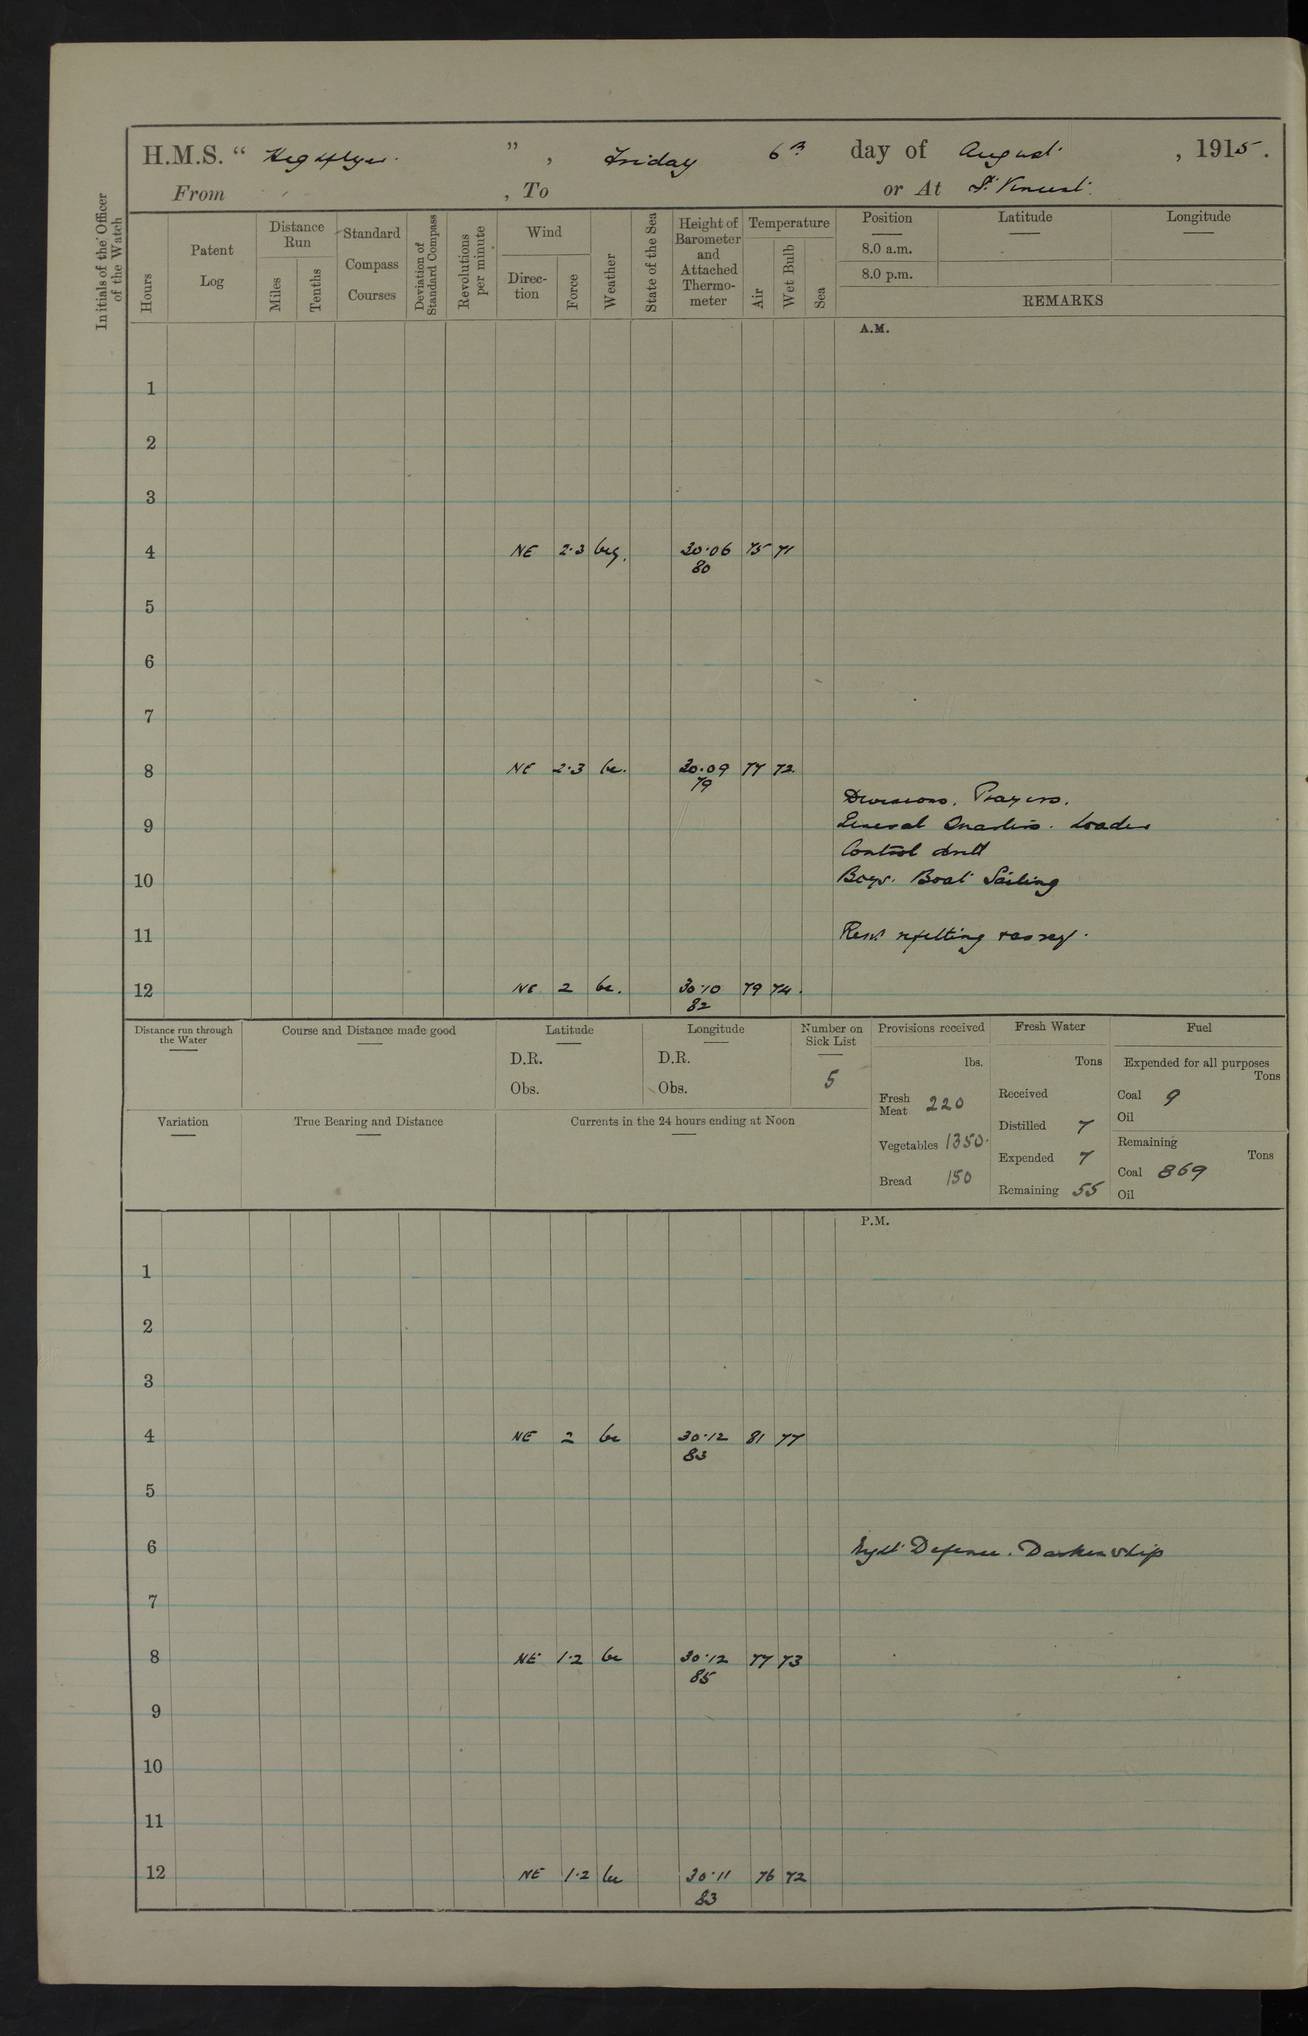 H.M.S. “ Highflyer. ” , Friday 6th day of August , 1915.
From , To or At St Vincent.
Initials of the Officer of the Watch
Hours
Patent Log
Distance Run
Miles
Tenths
Standard Compass Courses
Deviation of Standard Compass
Revolutions per minute
Wind
Direction
Force
Weather
State of the Sea
Height of Barometer and Attached Thermometer
Temperature
Air
Wet Bulb
Sea
Position Latitude Longitude
8.0 a.m.
8.0 p.m.
REMARKS
A.M.
1
2
3
4 NE 2·3 30·06 75 71
80
5
6
7
8 NE 2·3 bc. 30·09 77 72
79
Divisions. Prayers.
9 General Quarters. Loader
Control drill
10 Boys. Boat Sailing
11 Rem. refitting as req.
12 NE 2 bc. 30·10 79 74.
82
Distance run through the Water
Course and Distance made good
Latitude
D.R.
Obs.
Longitude
D.R.
Obs.
Number on Sick List
5
Provisions received
lbs.
Fresh Meat 220
Vegetables 1350.
Bread 150
Fresh Water
Tons
Received
Distilled 7
Expended 7
Remaining 55
Fuel
Expended for all purposes
Tons
Coal 9
Oil
Remaining
Tons
Coal 869
Oil
Variation
True Bearing and Distance
Currents in the 24 hours ending at Noon
P.M.
1
2
3
4 NE 2 bc 30·12 81 77
83
5
6 Night Defence. Darken ship
7
8 NE 1·2 bc 30·12 77 73
85
9
10
11
12 NE 1·2 bc 30·11 76 72
83